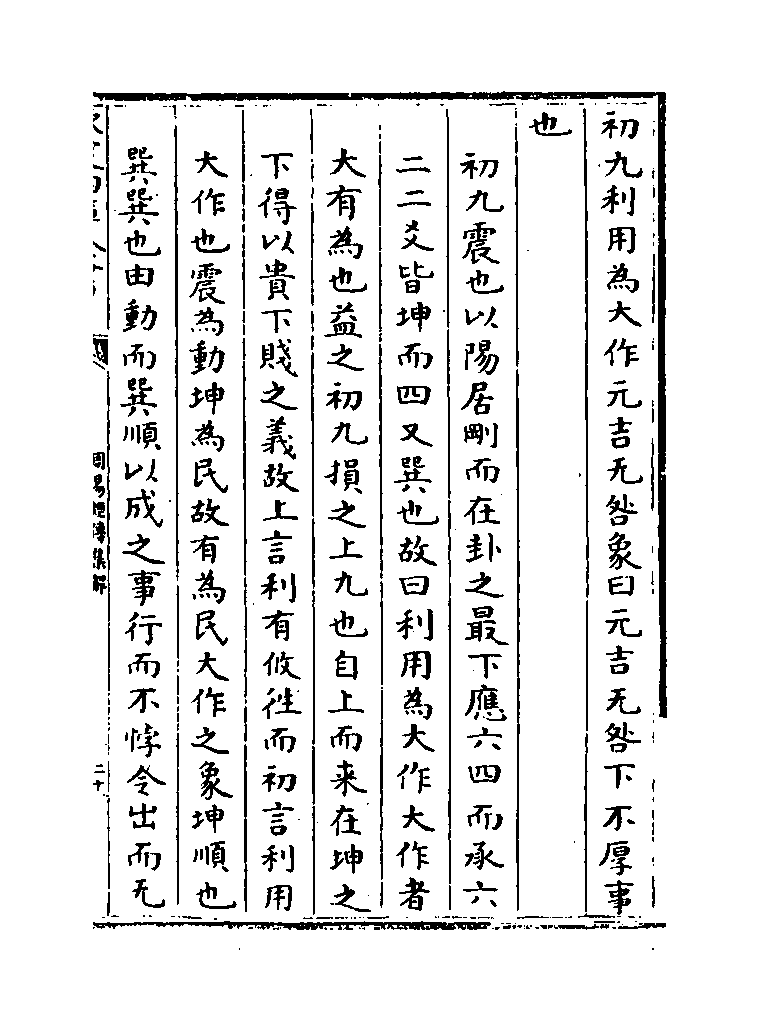 初九利用為大作元吉无咎象曰元吉无咎下不厚事
也
初九震也以陽居剛而在卦之最下應六四而承六
二二爻皆坤而四又巽也故曰利用為大作大作者
大有為也益之初九損之上九也自上而来在坤之
下得以貴下賤之義故上言利有攸往而初言利用
大作也震為動坤為民故有為民大作之象坤順也
巽巽也由動而巽順以成之事行而不悖令出而无
周易經傳集解
二十